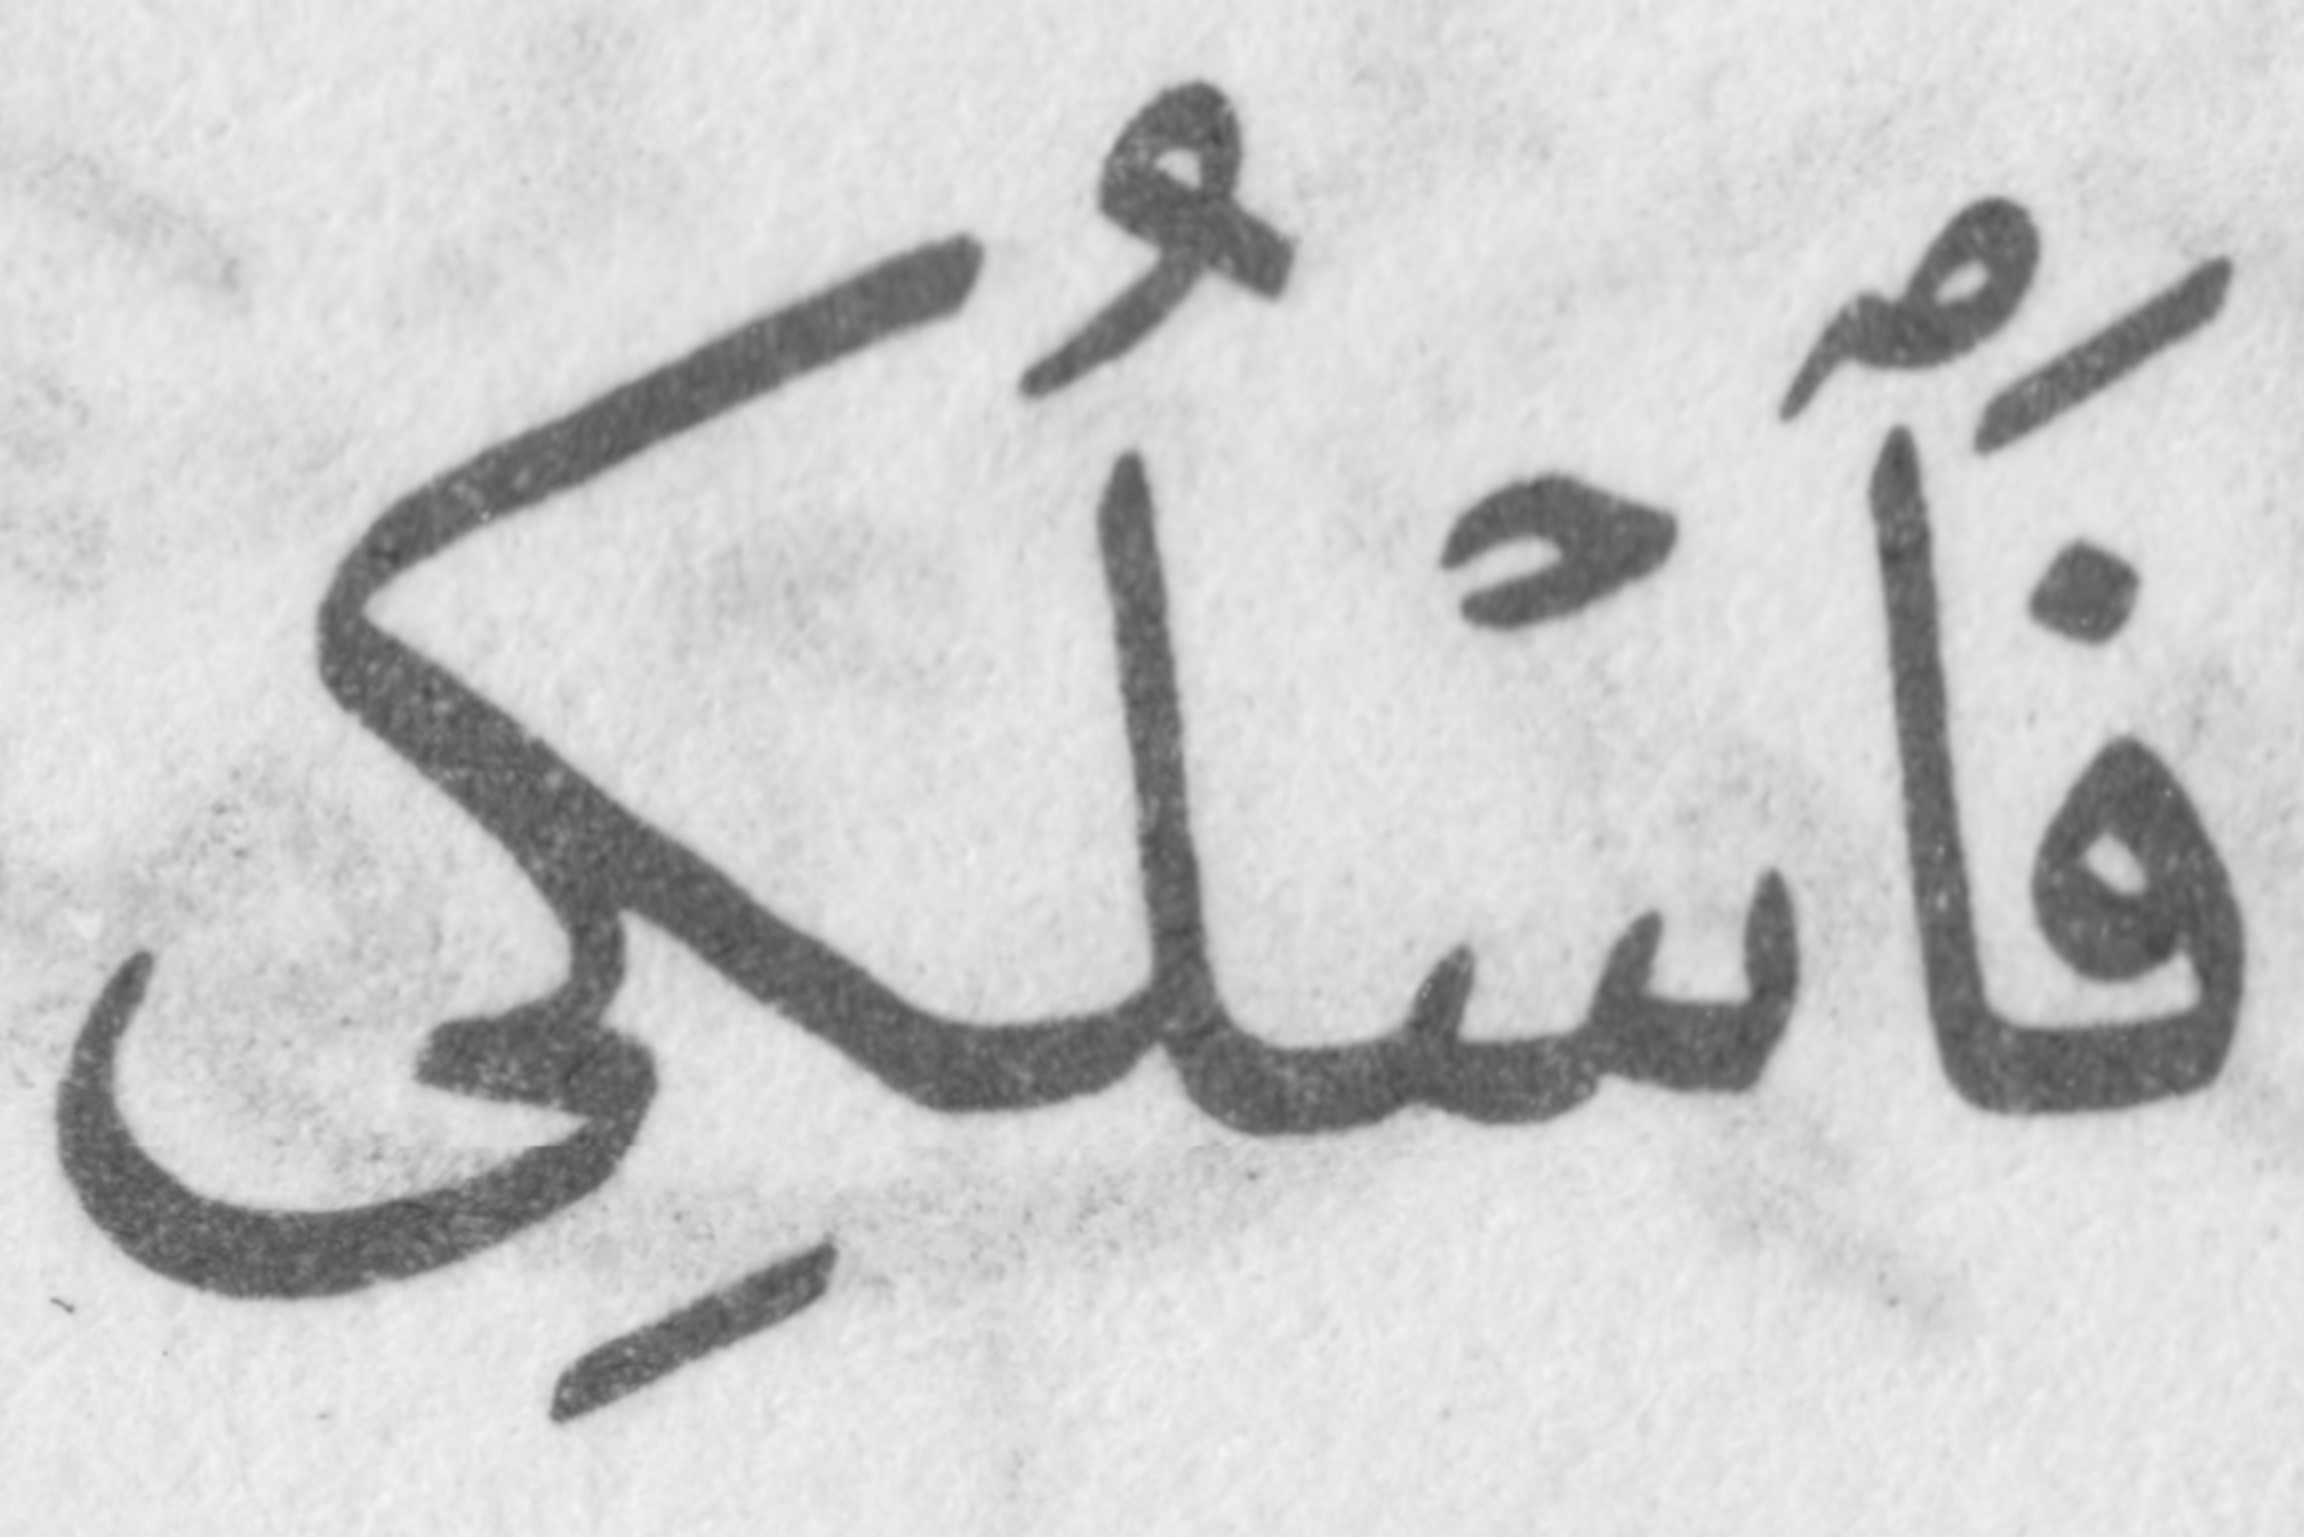 فَٱسۡلُكِی